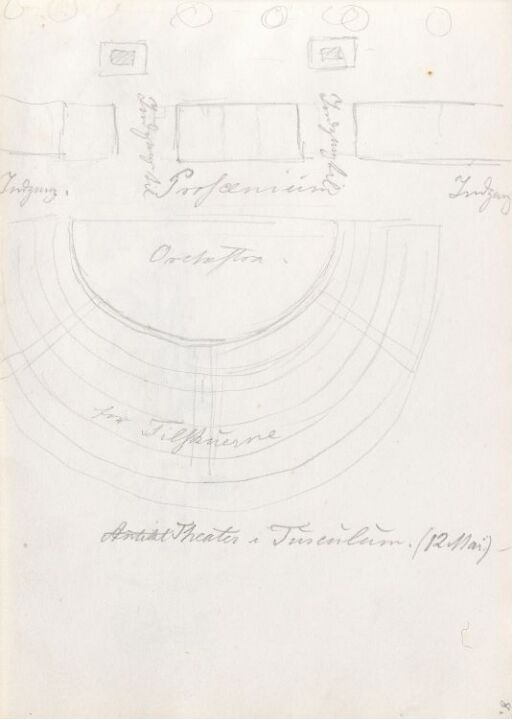 Indgang til
Indgang til
Indgang.
Proscenium
Indgang
Orchestra.
for Tilskuerne
Antikt Theater i Tusculum. (12 Mai)
8.